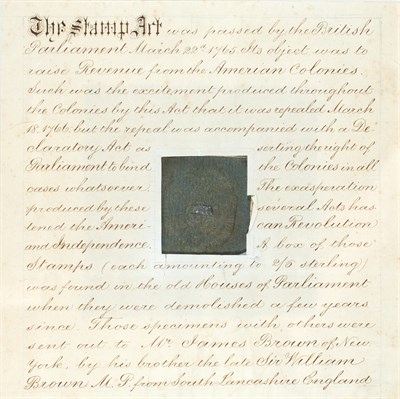 The Stamp Act was passed by the British
Parliament March 22ⁿᵈ 1765. Its object was to
raise Revenue from the Amerian Colonies.
Such was the excitement produced throughout
the Colonies by this Act that it was repealed March
18. 1766, but the repeal was accompanied with a De-
claratory Act as serting the right of
Parliament to bind the Colonies in all
cases whatsoever. The exasperation
produced by these several Acts has
tened the Ameri can Revolution
and Independence. A box of those
Stamps (each amounting to 2/6 sterling)
was found in the old Houses of Parliament
when they were demolished a few years
since. Those specimens with others were
sent out to Mr James Brown of New
York, by his brother the late Sir William
Brown M.P. from South Lancashire England